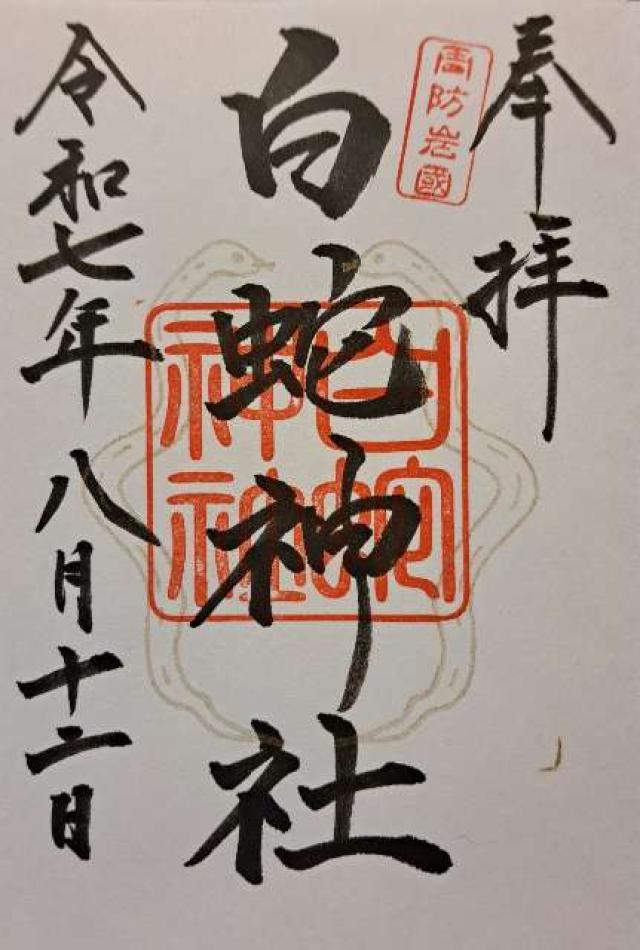 奉拝
周防岩國
白蛇神社
白蛇神社
令和七年八月十二日